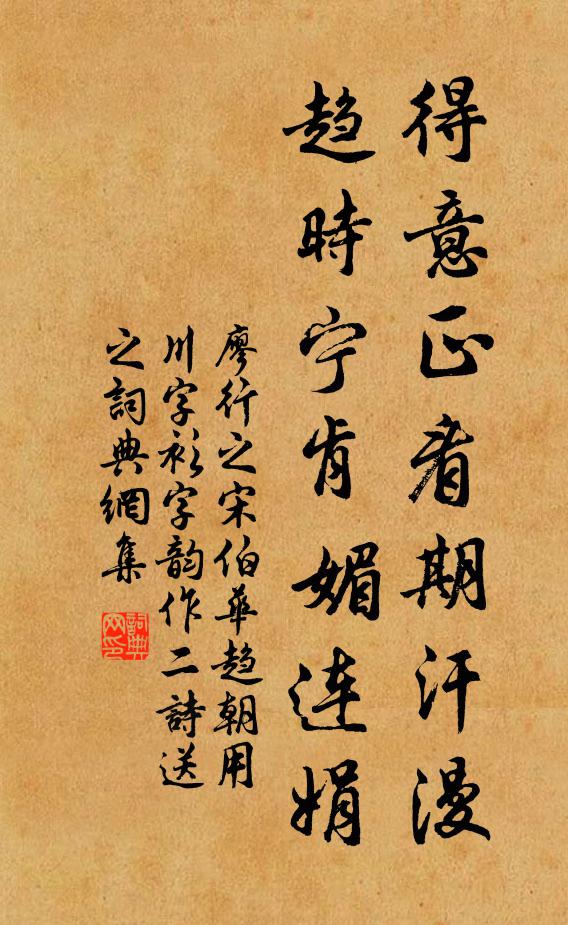 得意正看期汗漫
趋時宁肯媚連娟
廖行之宋伯華趋朝用
川字衫字韵作二詩送
之詞典網集
詞典网印